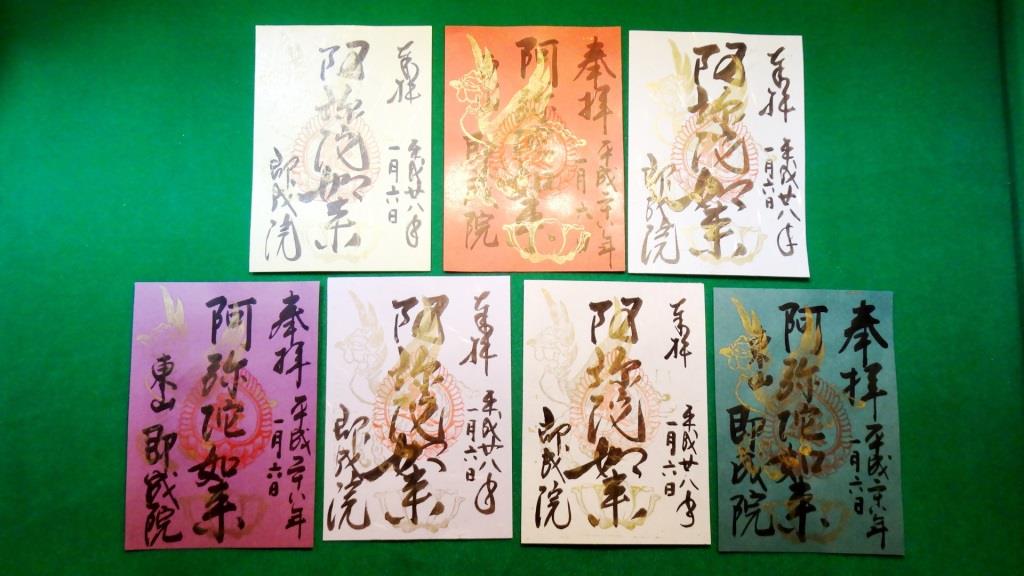 奉拝
平成廿八年
一月六日
阿弥陀如来
即成院
奉拝
平成二十八年
一月六
阿弥陀如来
即成院
奉拝
平成廿八年
一月六日
阿弥陀如来
即成院
奉拝
平成二十八年
一月六日
阿弥陀如来
東山 即成院
奉拝
平成廿八年
一月六日
阿弥陀如来
即成院
奉拝
平成廿八年
一月六日
阿弥陀如来
即成院
奉拝
平成二十八年
一月六日
阿弥陀如来
東山 即成院